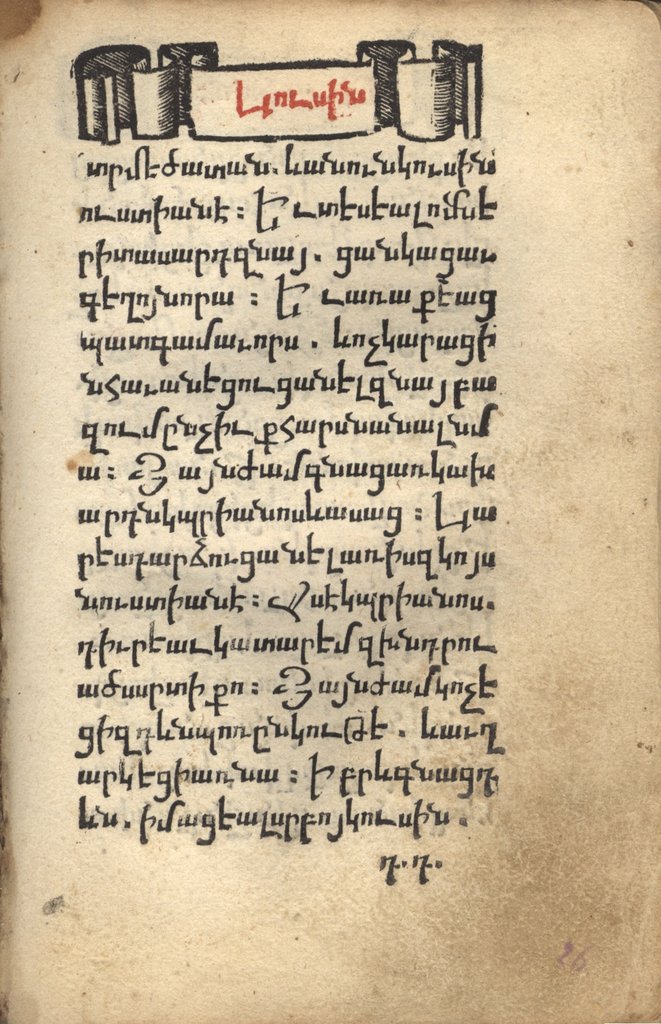 Կուսին
տրմէ ժատան. և անուն կուսին
ուստիանէ : Եւ տեսեալ ոմն ե
րիտասարդ զնայ. ցանկացաւ
գեղոյ նորա : Եւ առաքեաց
պատգամաւորս. և ոչ կարաց ի
ն հաւանեցուցանել զնայ բա
զում ընչիւք հարսնանալ նմ
ա : Յայնժամ գնաց առ կախ
արդն կպրիանոս և ասաց : Կա
րես դարձուցանել առ իս զկոյս
ն ուստիանէ : Ասէ կպրիանոս.
դիւրեաւ կատարեմ զխնդրու
ածս սրտի քո : Յայնժամ կոչե
ցի զդևն պոռընկութե. և աւղ
արկեց ի առ նա : Ի բրև գնաց դ
ևն. իմացեալ սրբոյ կուսին.
դ. դ.
26